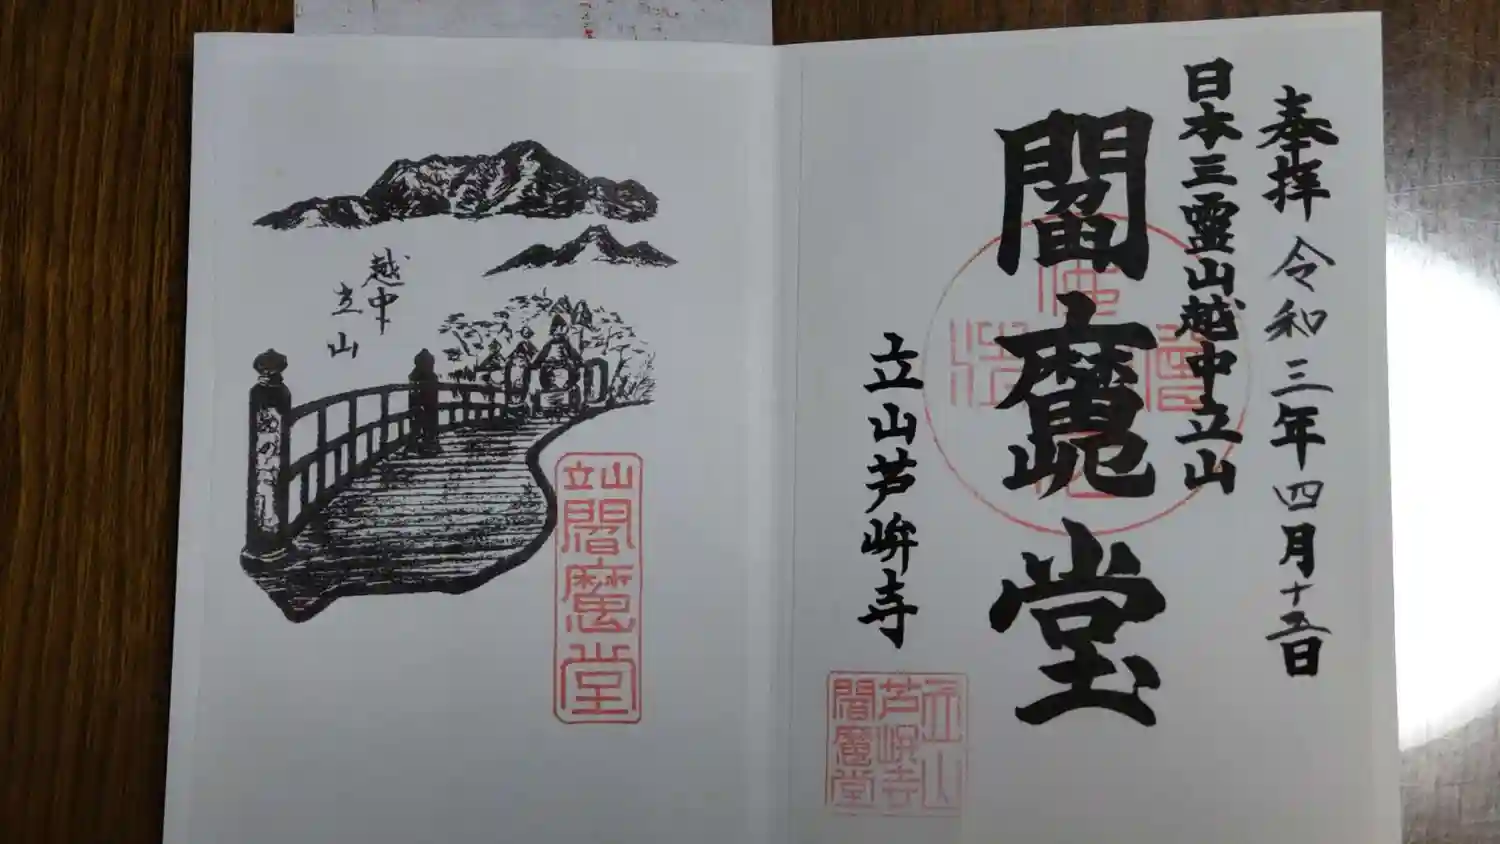 奉拝 令和三年四月十五日
日本三霊山越中立山
閻魔堂
立山芦峅寺
佛法僧
立山
芦峅寺
閻魔堂
越中
立山
立山
閻魔堂